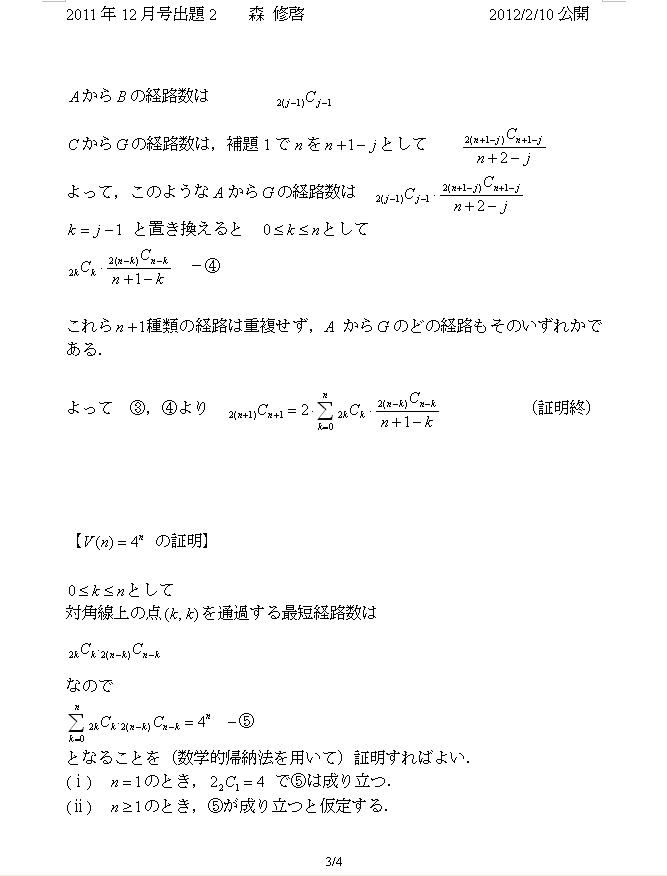 2011年12月号出題2　　森 修啓　　2012/2/10公開
AからBの経路数は　　₂₍ⱼ₋₁₎Cⱼ₋₁
CからGの経路数は，補題1でnをn+1−jとして　　\frac{{}_{2(n+1-j)}C_{n+1-j}}{n+2-j}
よって，このようなAからGの経路数は　{}_{2(j-1)}C_{j-1}\cdot\frac{{}_{2(n+1-j)}C_{n+1-j}}{n+2-j}
k = j−1 と置き換えると　0≤k≤nとして
{}_{2k}C_{k}\cdot\frac{{}_{2(n-k)}C_{n-k}}{n+1-k}　−④
これらn+1種類の経路は重複せず，A からGのどの経路もそのいずれかで
ある．
よって　③，④より　{}_{2(n+1)}C_{n+1}=2\cdot\sum_{k=0}^{n}{}_{2k}C_{k}\cdot\frac{{}_{2(n-k)}C_{n-k}}{n+1-k}　　（証明終）
【V(n)=4ⁿ の証明】
0≤k≤nとして
対角線上の点(k, k)を通過する最短経路数は
{}_{2k}C_{k}\cdot{}_{2(n-k)}C_{n-k}
なので
\sum_{k=0}^{n}{}_{2k}C_{k}\cdot{}_{2(n-k)}C_{n-k}=4^{n}　−⑤
となることを（数学的帰納法を用いて）証明すればよい．
(ⅰ)　n=1のとき，2₂C₁=4 で⑤は成り立つ．
(ⅱ)　n≥1のとき，⑤が成り立つと仮定する．
3/4